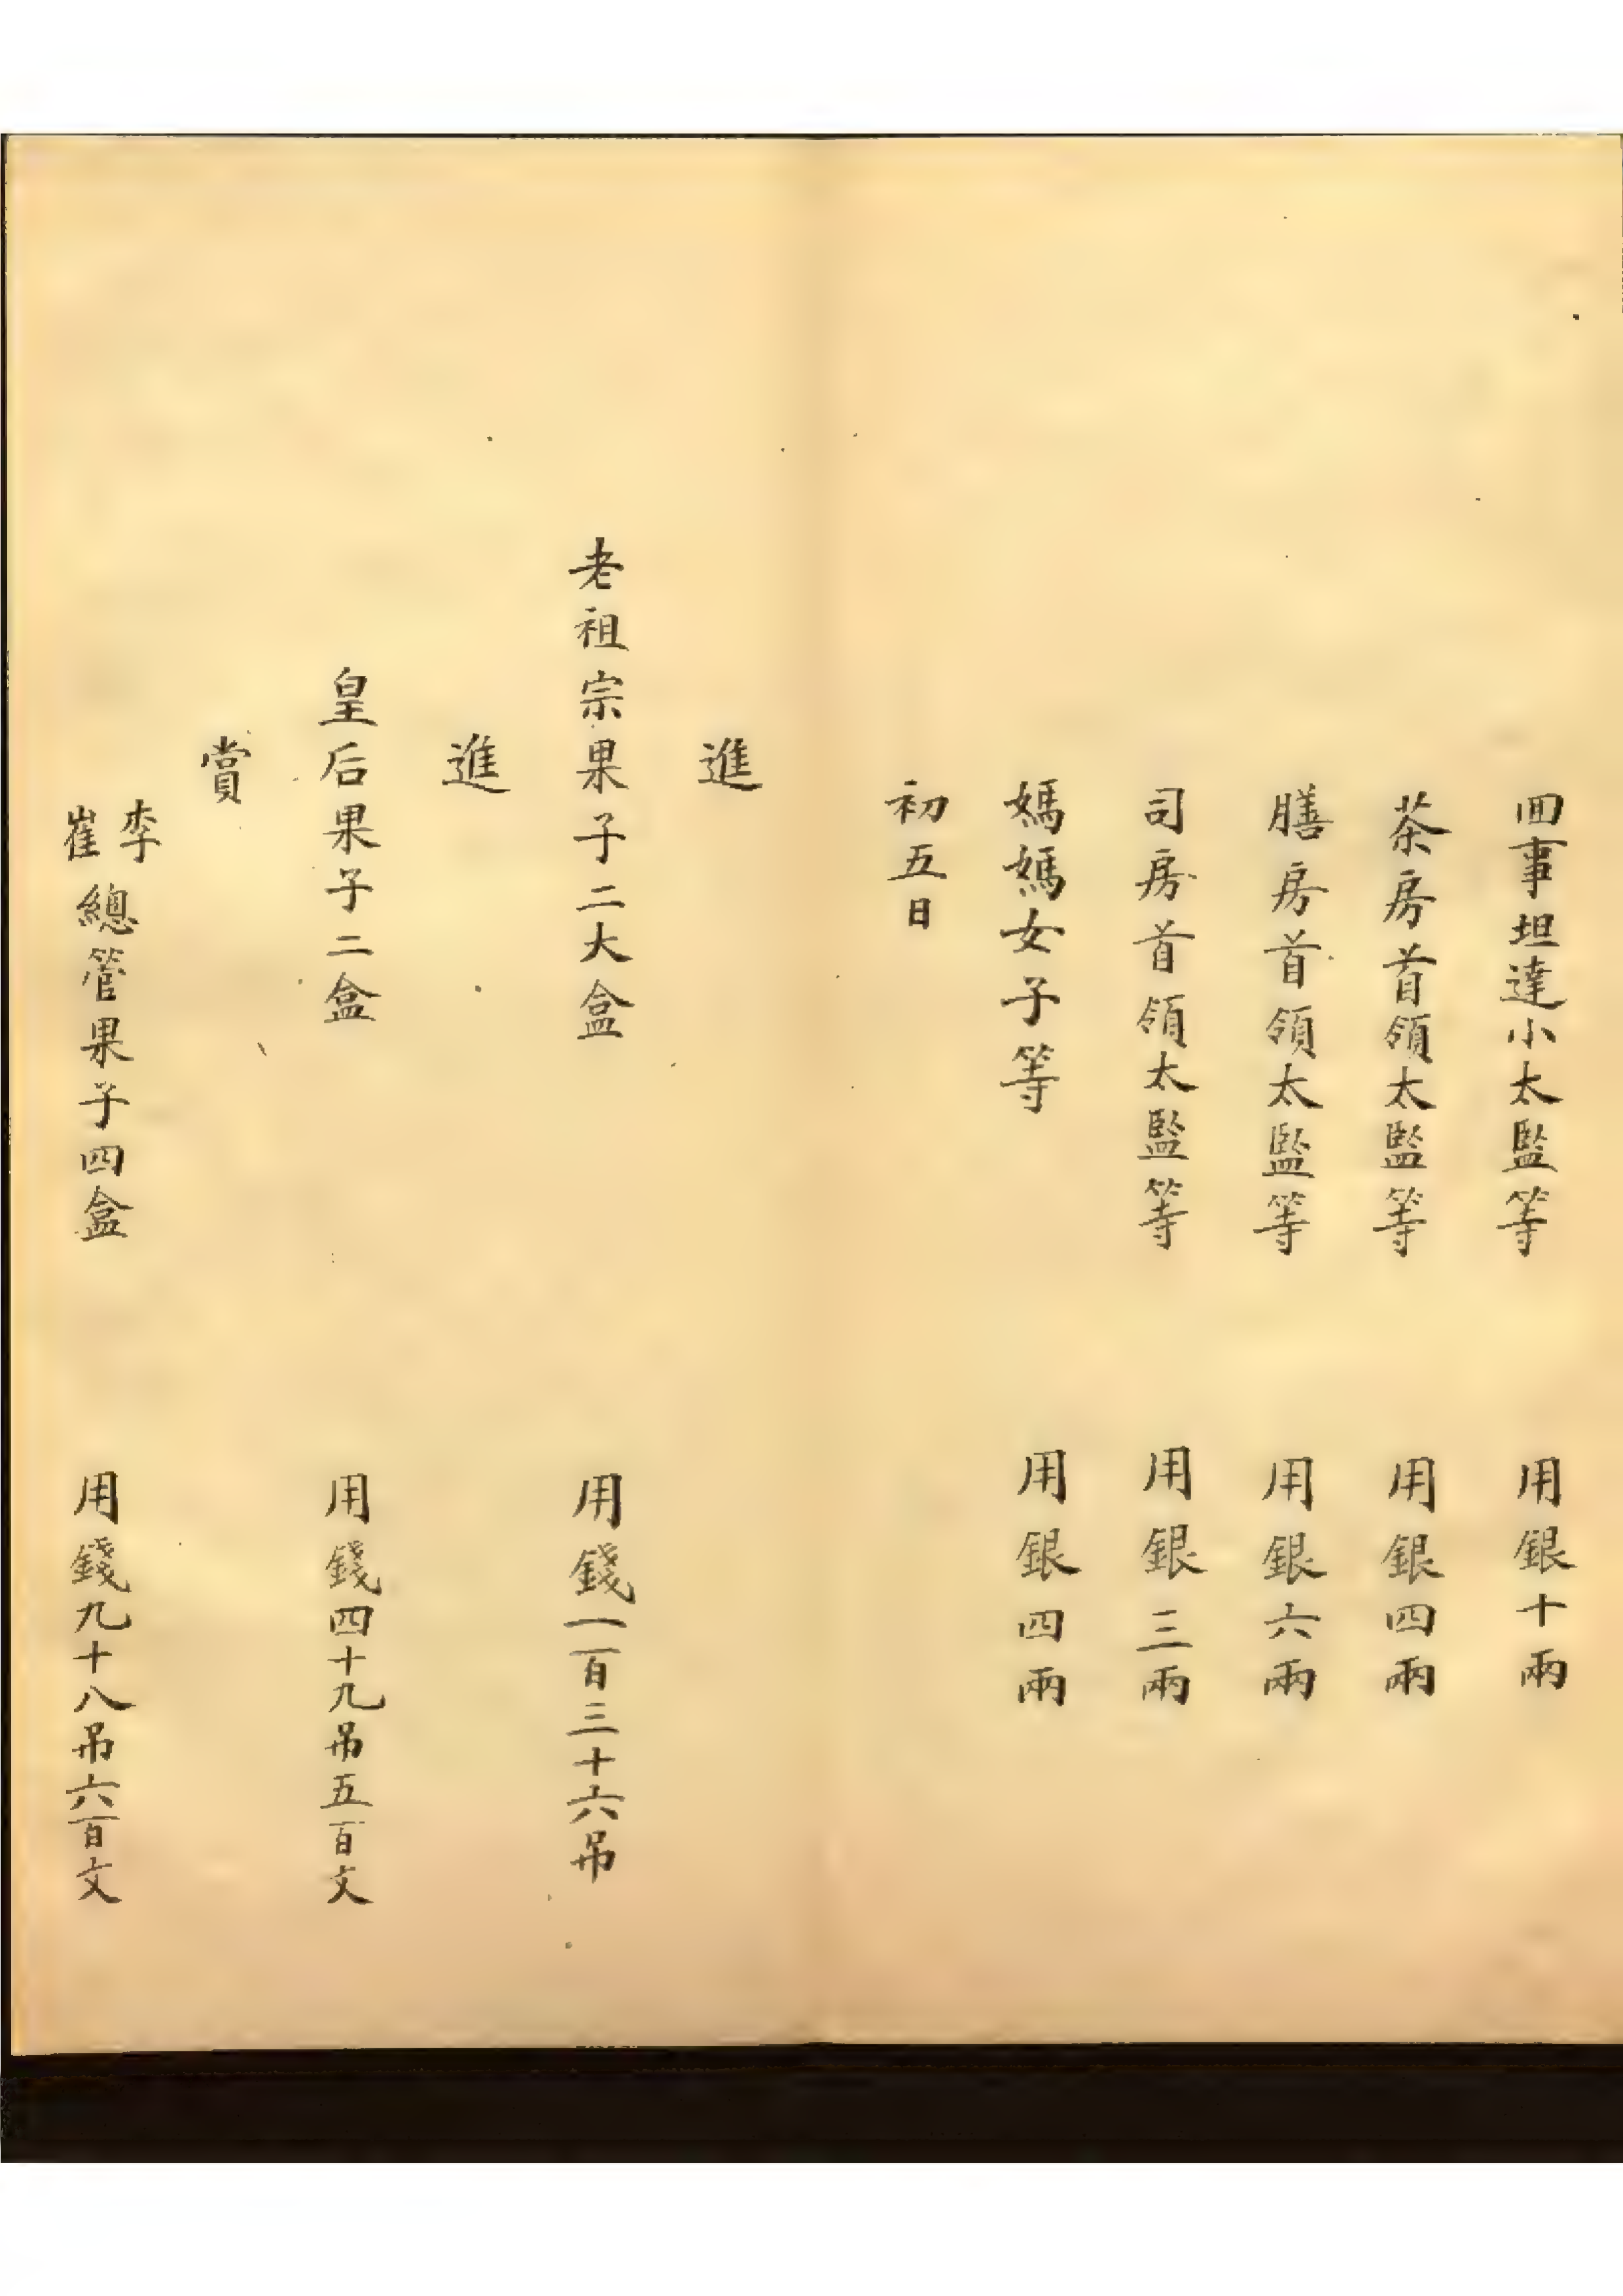 回事坦達小太監等 用銀十兩
茶房首領太監等 用銀四兩
膳房首領太監等 用銀六兩
司房首領太監等 用銀三兩
媽媽女子等 用銀四兩
初五日
進
老祖宗果子二大盒 用錢一百三十六吊
進
皇后果子二盒 用錢四十九吊五百文
賞
李崔總管果子四盒 用錢九十八吊六百文